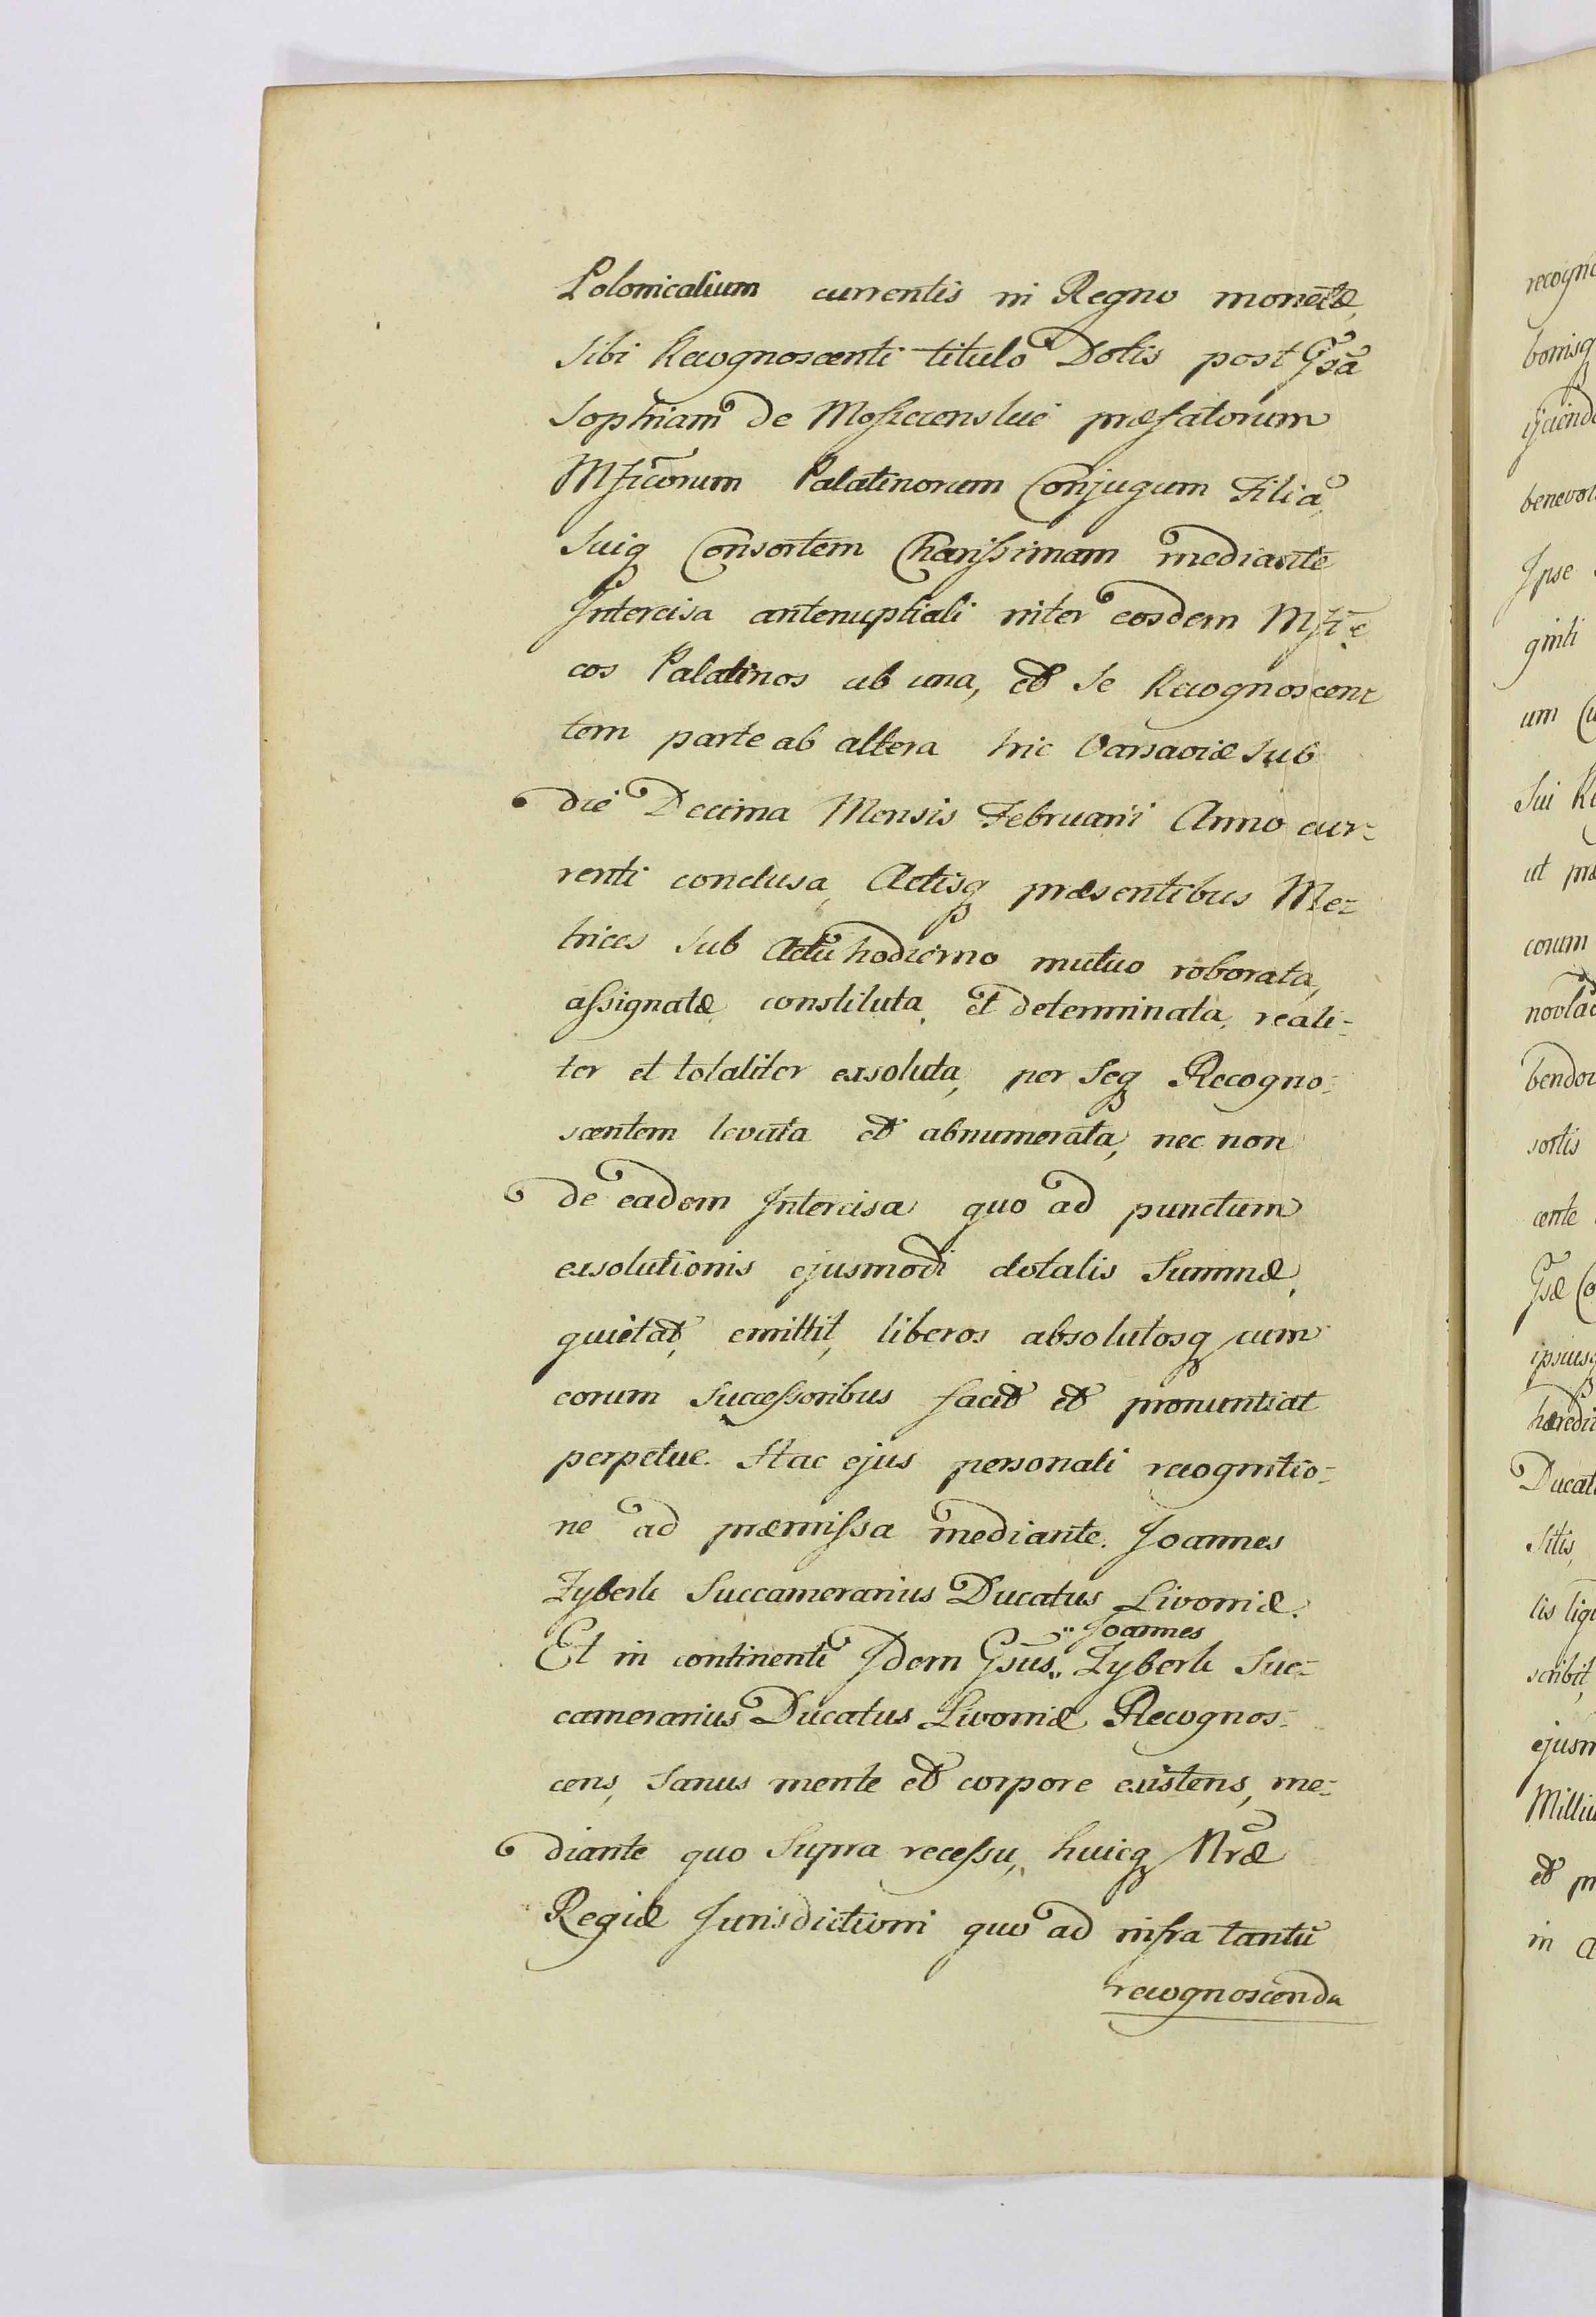 Polonicalium currentis in Regno monetæ,
Sibi Recognoscenti titulo Dotis post Gsã
Sophiam de Moszczenskie præfatorum
Mficorum Palatinorum Conjugum Filiã,
Suiq Consortem Charissimam mediante
Intercisa antenuptiali inter eosdem Mfi-
cos Palatinos ab una, et Se Recognoscen-
tem parte ab altera hic Varsaviæ sub
die Decima Mensis Februarii Anno cur-
renti conclusa, Actisq præsentibus Me-
trices sub Actu hodierno mutuo roborata,
assignatæ, constituta, et determinata, reali-
ter et totaliter exsoluta, per Seq Recogno-
scentem levata et abnumerata, nec non
de eadem Intercisa quo ad punctum
exsolutionis ejusmodi dotalis Summæ,
quietat, emittit, liberos absolutosq cum
eorum Successoribus facit et pronuntiat
perpetue. Hac ejus personali recognitio-
ne ad præmissa mediante. Joannes
Zyberk Succamerarius Ducatus Livoniæ.
Joannes
Et in continenti Idem Gsus Zyberk Suc-
camerarius Ducatus Livoniæ Recognos-
cens, Sanus mente et corpore existens, me-
diante quo Supra recessu, huicq Nræ
Regiæ Jurisdictioni quo ad infra tantũ
recognoscenda
recogno
bonisq
benevol
Ipse
ginti
um
Sui Re
ut præ
corum
bendor
sortis
cente
Gsæ Co
ipsiusq
hæredi
Ducat
sitis,
scribit,
ejusm
Milliu
et pr
in